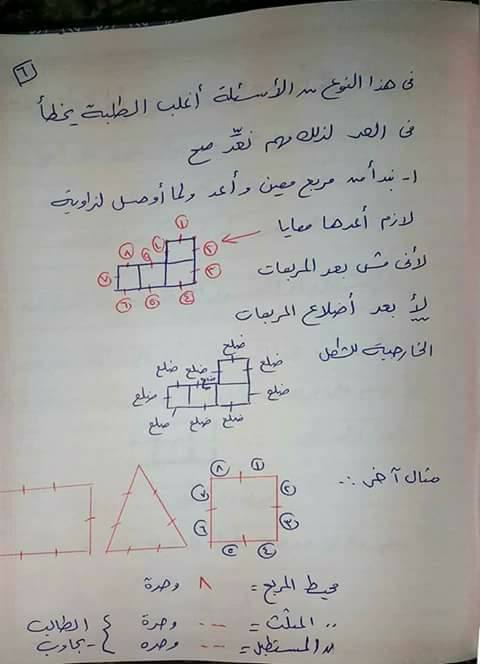 ٦
فى هذا النوع من الأسئلة أغلب الطلبة يخطأ
فى العد لذلك مهم نعدّ صح
١- نبدأ من مربع معين وأعد ولما أوصل لزاوية
لازم أعدها معايا
لأنى مش بعد المربعات
لأ بعد أضلاع المربعات
الخارجية للشكل
١
٢
٣
٤
٥
٦
٧
٨
٩
١٠
ضلع
ضلع ضلع ضلع
ضلع
ضلع ضلع
ضلع ضلع ضلع
مثال آخر :-
٨ ١
٧ ٢
٦ ٣
٥ ٤
محيط المربع = ٨ وحدة
،، المثلث = --- وحدة } الطالب
،، المستطيل = --- وحده } - يجاوب